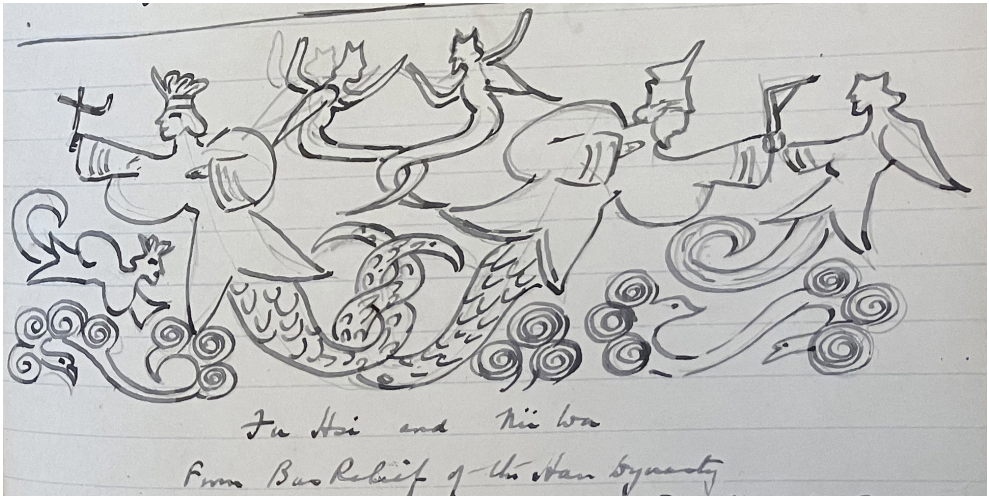 Fu Hsi and Nü Wa
From Bas Relief of the Han Dynasty